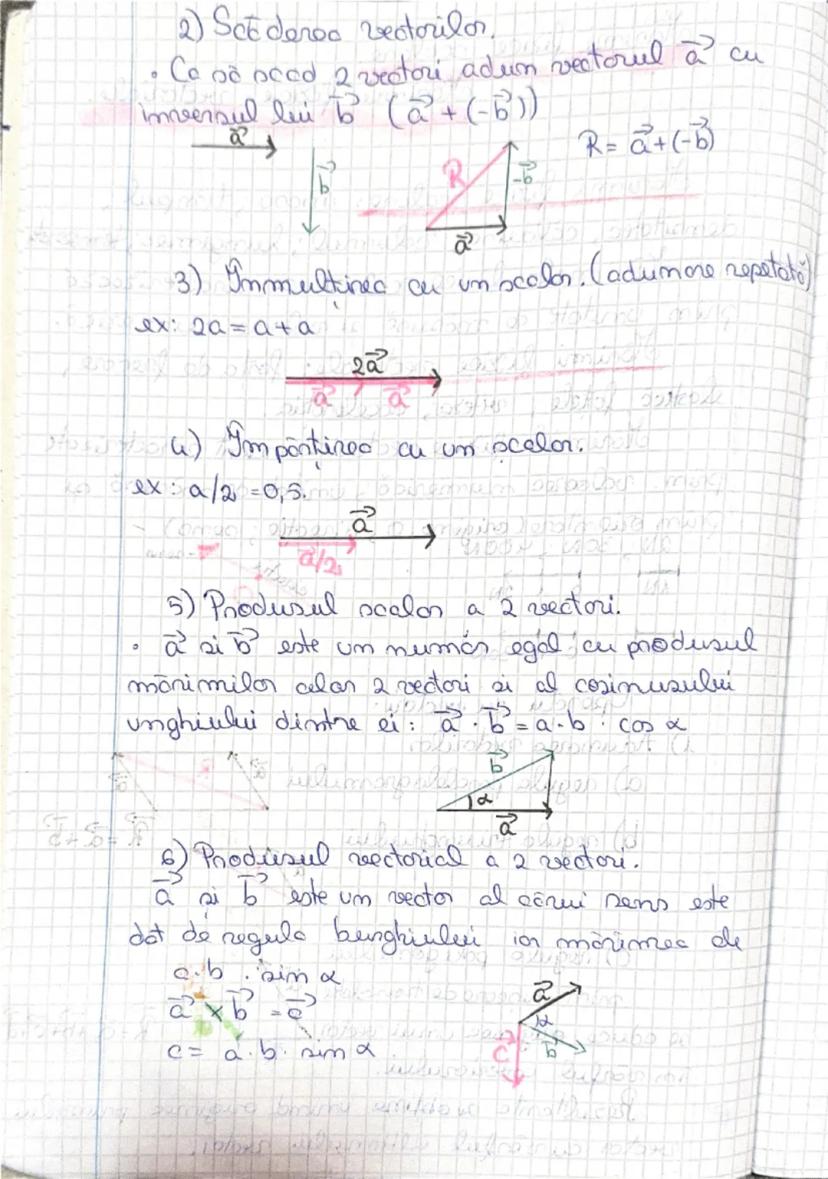 2) Scăderea vectorilor.
• Ca să scad 2 vectori adun vectorul a⃗ cu
inversul lui b⃗ (a⃗ + (-b⃗))
a⃗
b⃗
R
-b⃗
a⃗
R = a⃗ + (-b⃗)
3) Înmulțirea cu un scalar. (adunare repetată)
ex: 2a = a + a
2a⃗
a⃗ a⃗
4) Împărțirea cu un scalar.
ex: a/2 = 0,5.
a⃗
a⃗/2
5) Produsul scalar a 2 vectori.
• a⃗ si b⃗ este un număr egal cu produsul
mărimilor celor 2 vectori si al cosinusului
unghiului dintre ei: a⃗ · b⃗ = a · b · cos α
b⃗
α
a⃗
6) Produsul vectorial a 2 vectori.
a⃗ si b⃗ este un vector al cărui sens este
dat de regula burghiului iar mărimea de
a · b · sin α
a⃗ × b⃗ = c⃗
c = a · b · sin α
a⃗
α
b⃗
c⃗